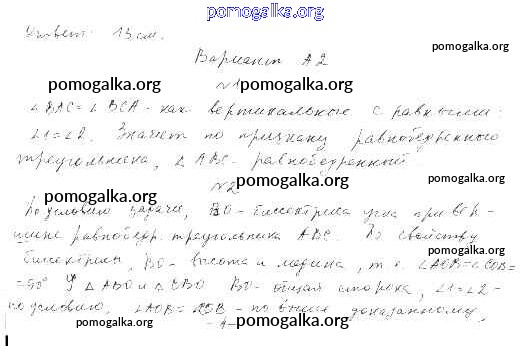 pomogalka.org
Ответ: 13 см.
pomogalka.org
Вариант А2
pomogalka.org pomogalka.org pomogalka.org
№1
∠BAC = ∠BCA - как вертикальные с равными:
∠1 = ∠2. Значит по признаку равнобедренного
треугольника, △ABC - равнобедренный
pomogalka.org pomogalka.org pomogalka.org
№2
По условию задачи, BO - биссектриса угла при вер-
шине равнобедр. треугольника ABC. По свойству
pomogalka.org pomogalka.org pomogalka.org
биссектрисы, BO - высота и медиана, т.к. ∠AOB = ∠COB =
= 90° У △ABO и △CBO BO - общая сторона, ∠1 = ∠2 -
по условию, ∠AOB = ∠COB - по выше доказанному,
pomogalka.org pomogalka.org pomogalka.org